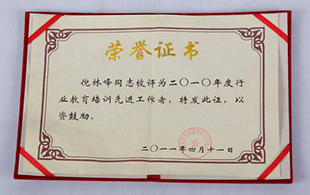 荣誉证书
倪林峰同志被评为二〇一〇年度行
业教育培训先进工作者，特发此证，以
资鼓励。
二〇一一年四月十一日